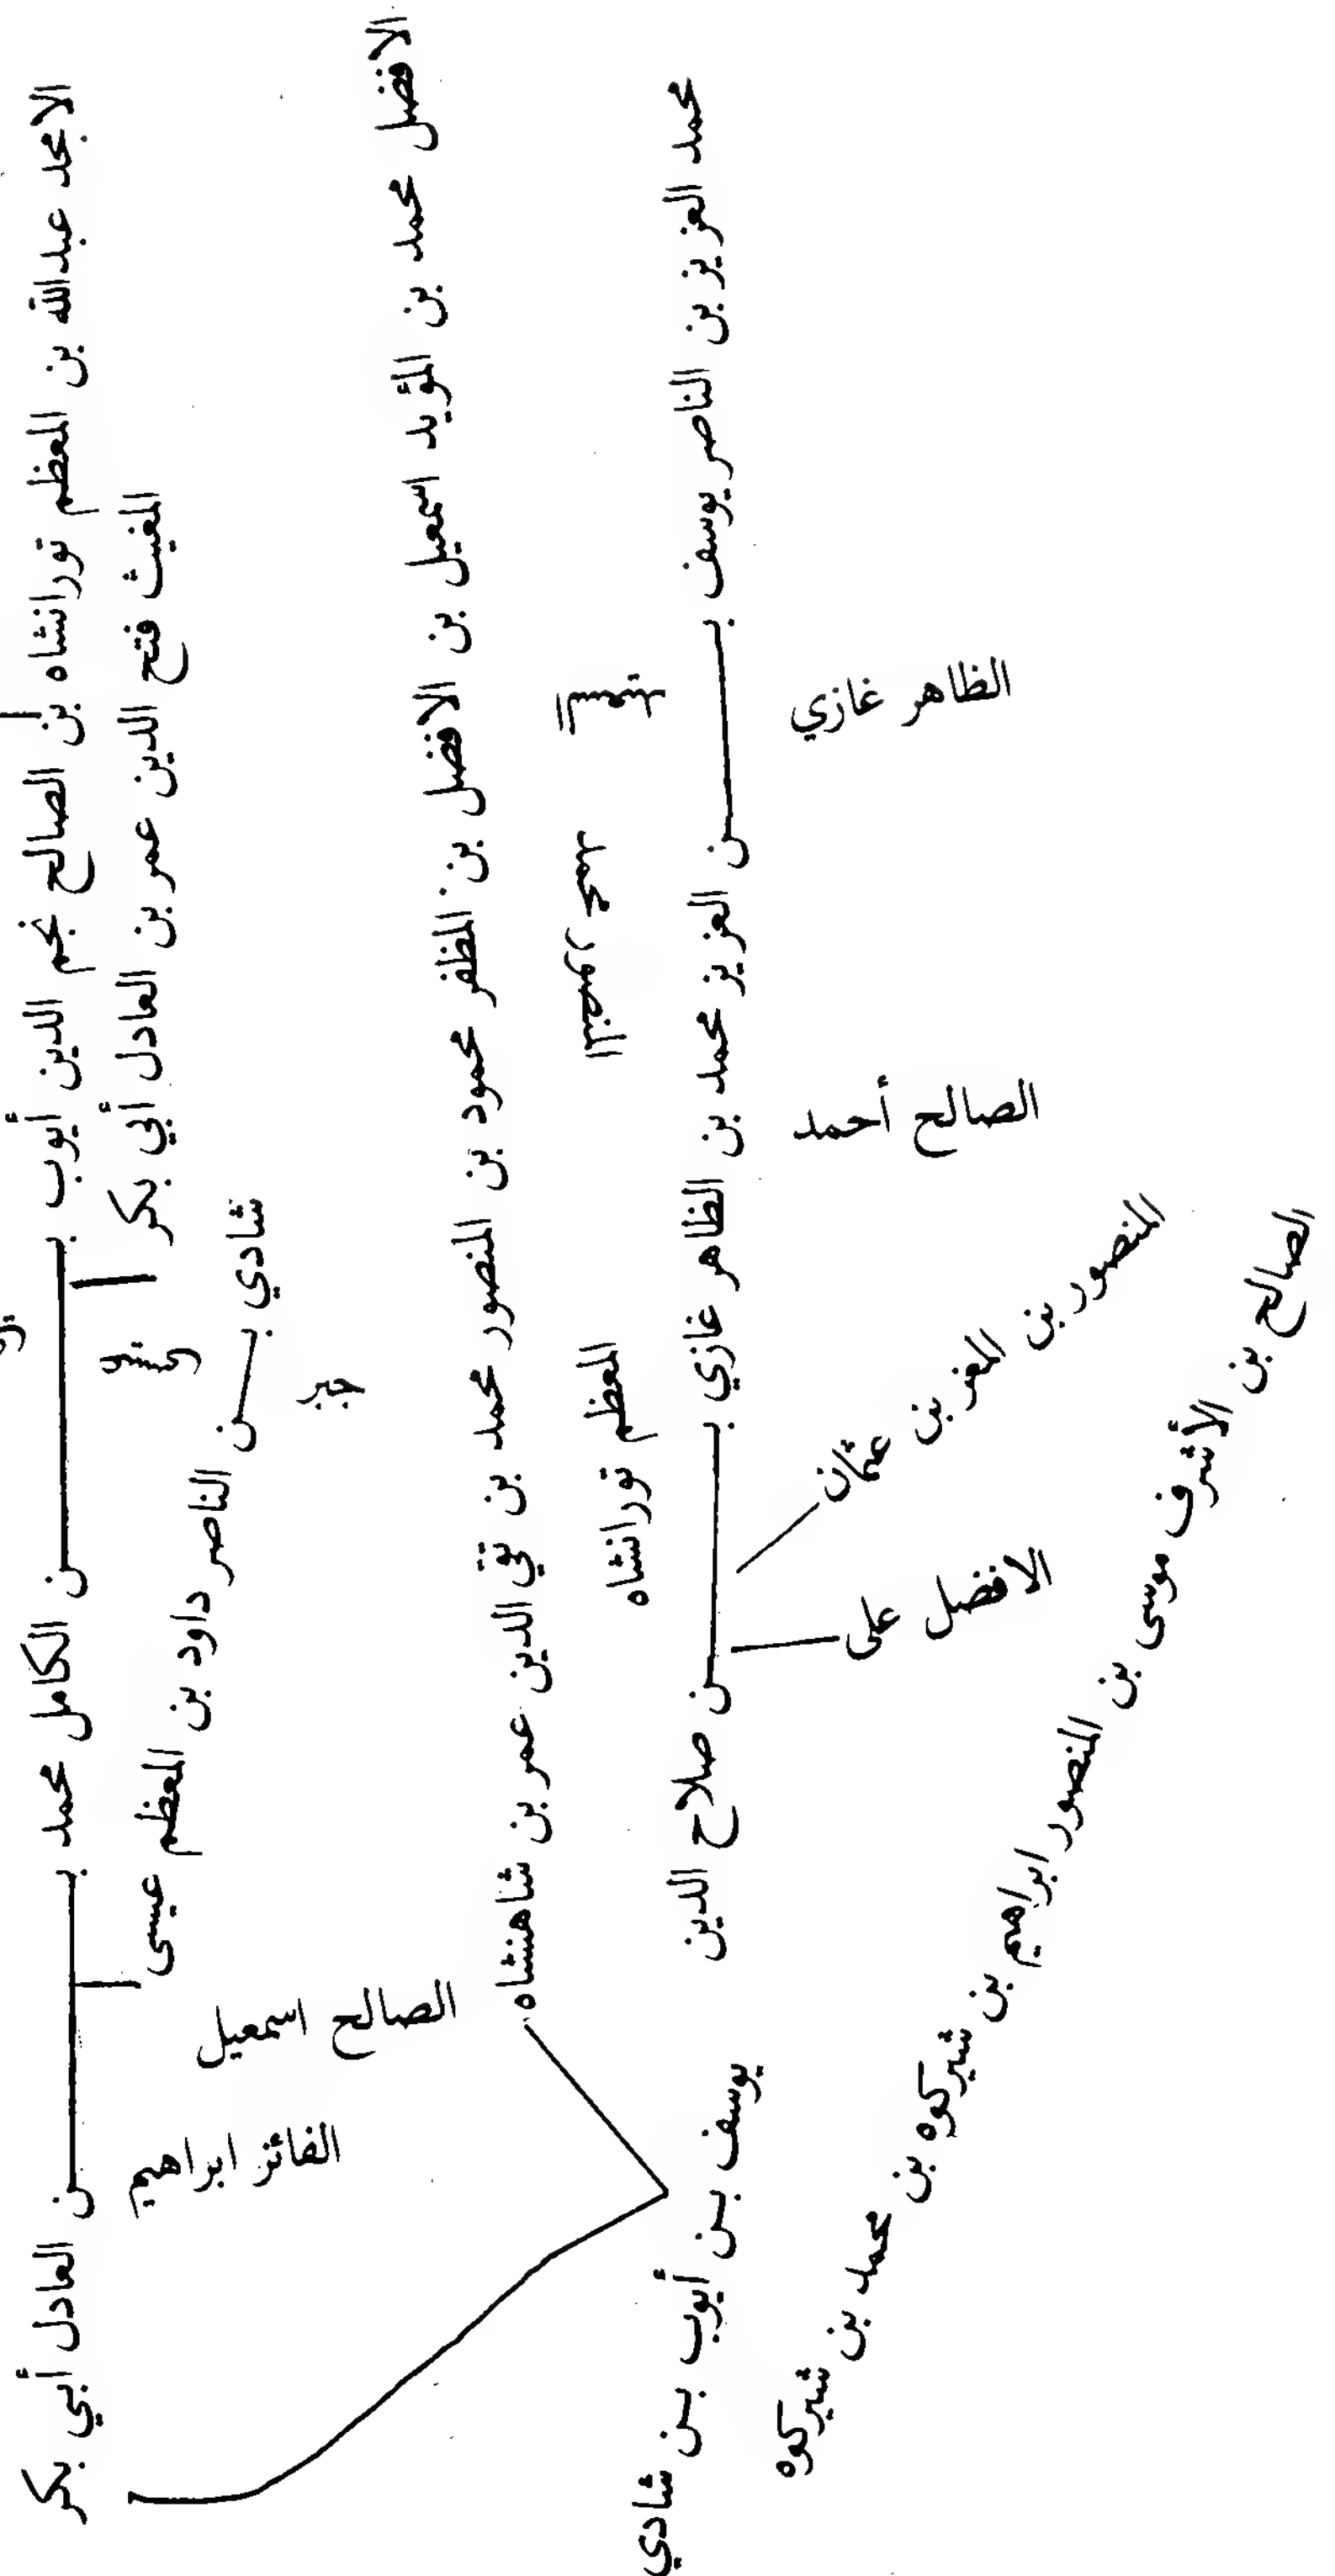 الامجد عبدالله بن المعظم تورانشاه بن الصالح نجم الدين أيوب بـــن الكامل محمد بـــن العادل أبي بكر
المغيث فتح الدين عمر بن العادل أبي بكر
شادي بـــن الناصر داود بن المعظم عيسى
الصالح اسمعيل
الفائز ابراهيم
الافضل محمد بن المؤيد اسمعيل بن الافضل بن المظفر محمود بن المنصور محمد بن تقي الدين عمر بن شاهنشاه
المعظم تورانشاه
محمد العزيز بن الناصر يوسف بـــن العزيز محمد بن الظاهر غازي بـــن صلاح الدين
يوسف بـن أيوب بـن شادي
الظاهر غازي
الصالح أحمد
المنصور بن العز بن عثمان
الافضل على
الصالح بن الأشرف موسى بن المنصور ابراهيم بن شيركوه بن محمد بن شيركوه